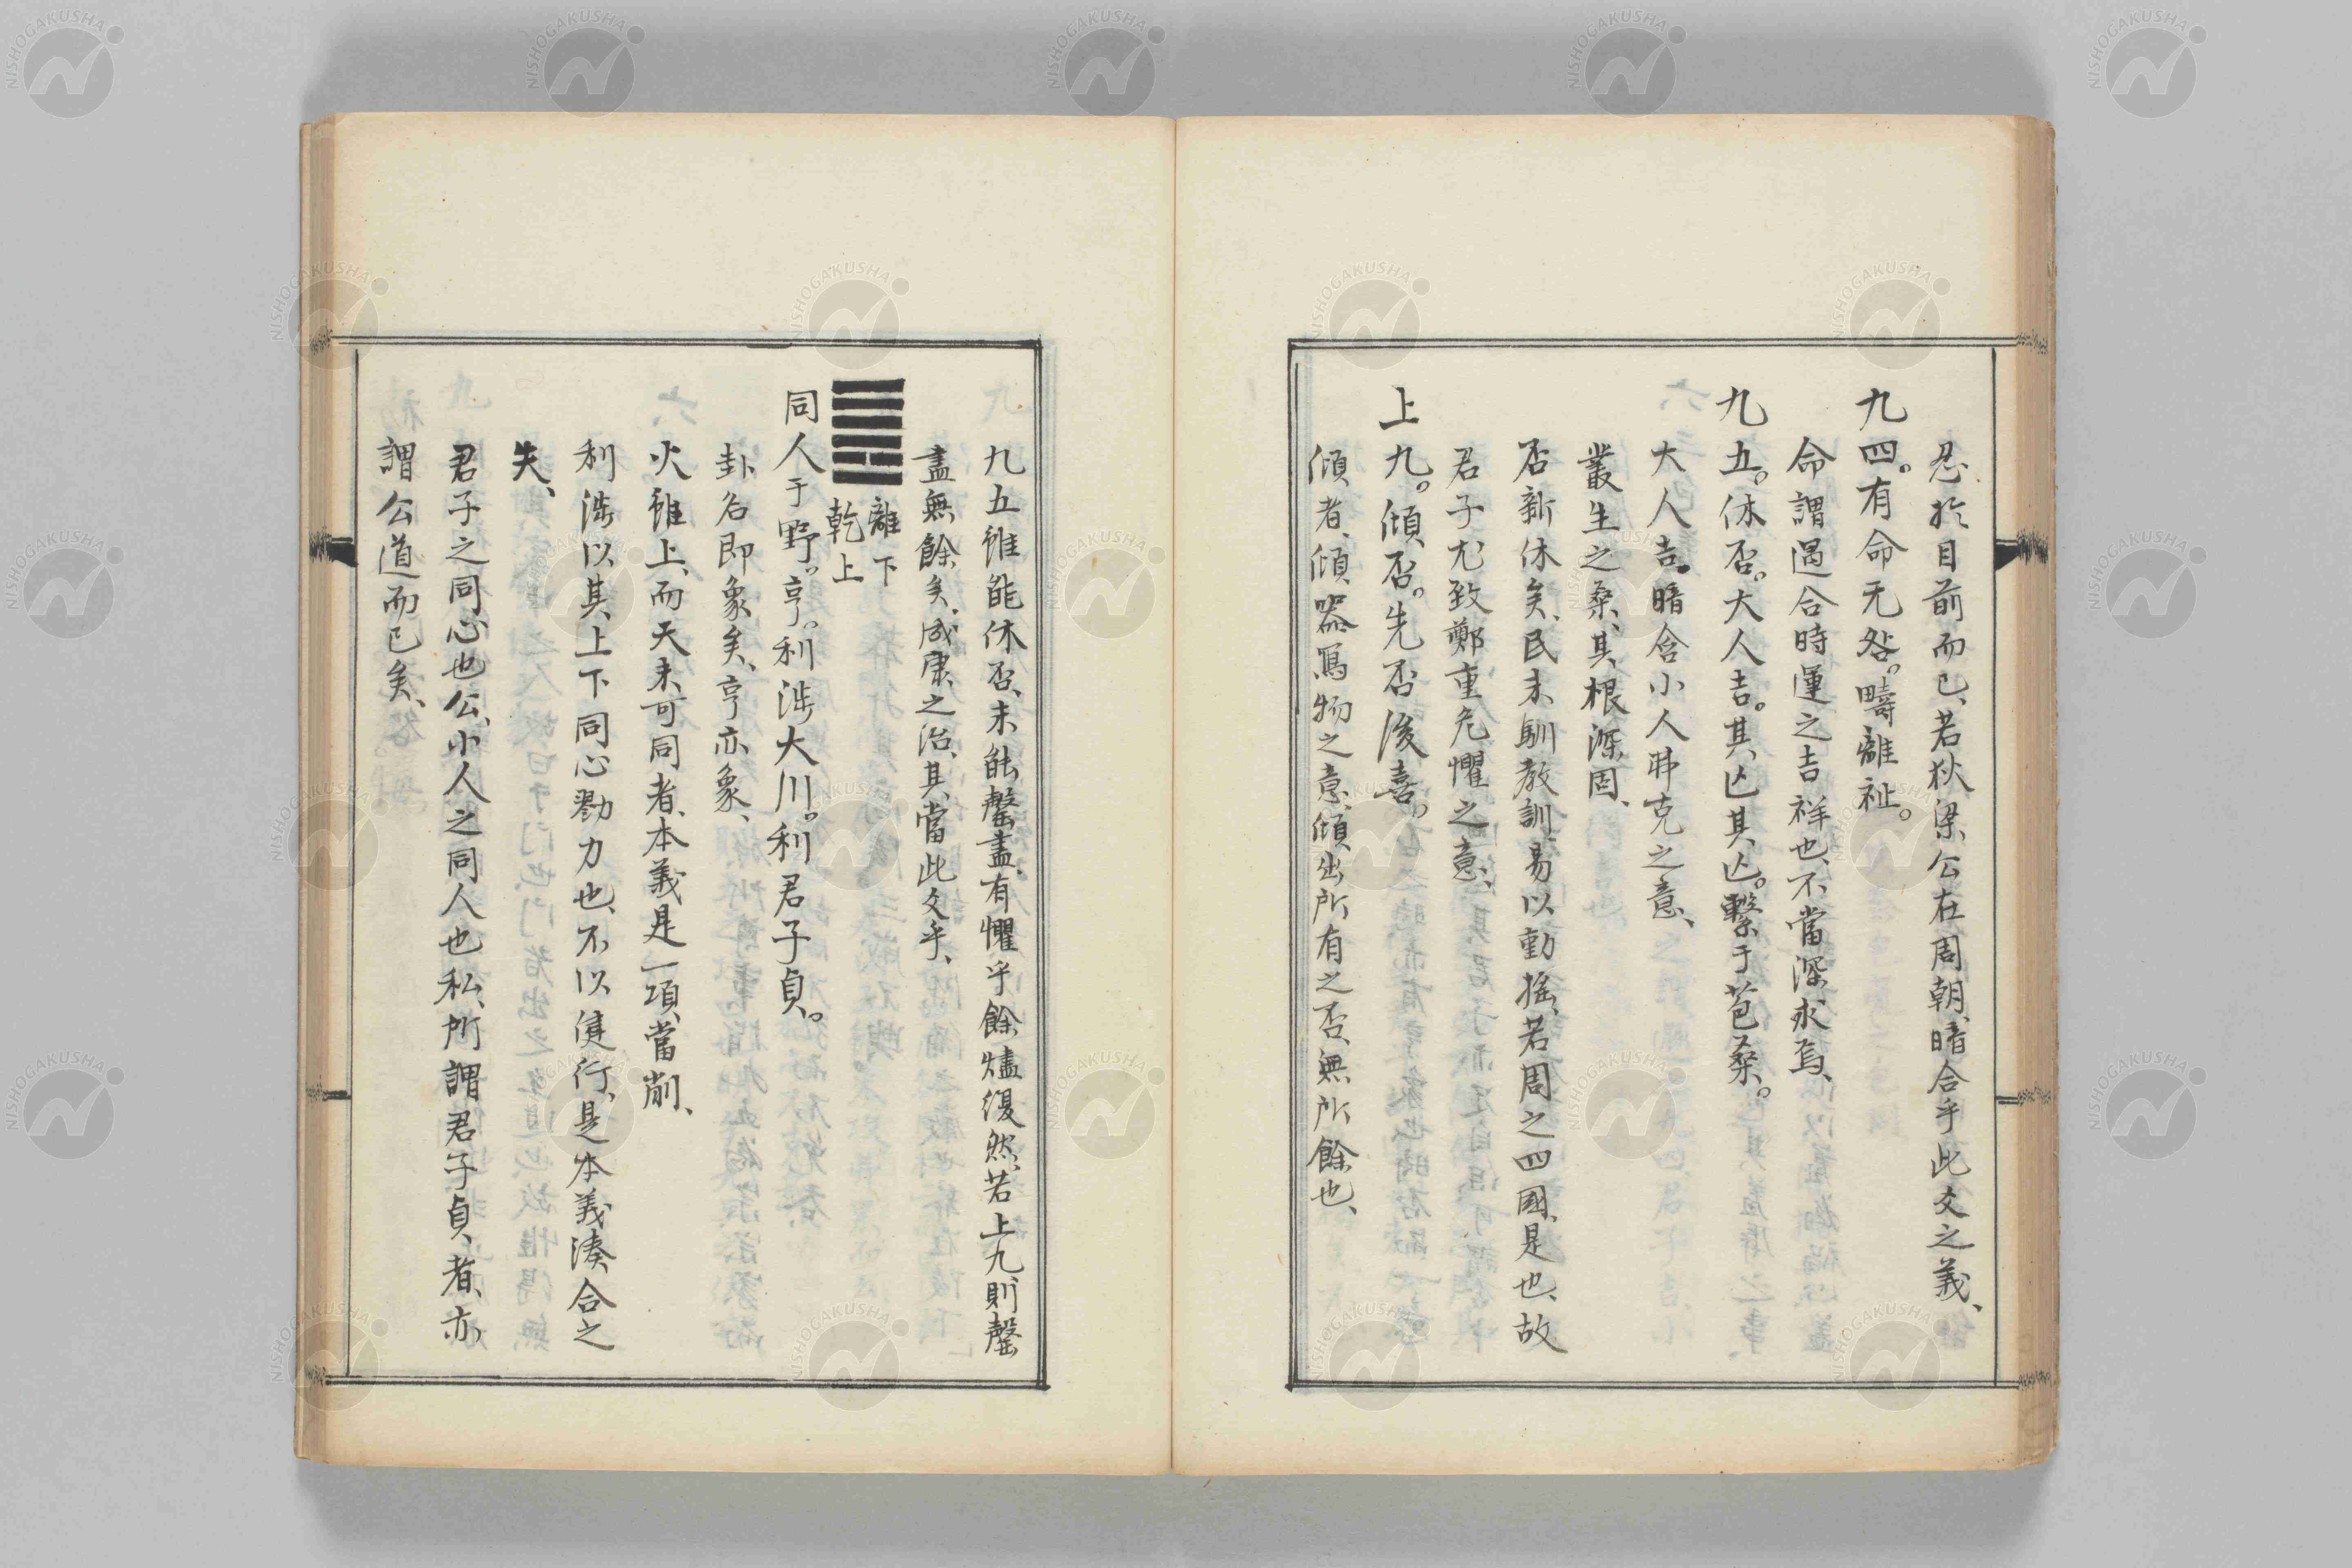 忍於目前而已、若狄梁公在周朝、暗合乎此爻之義、
九四。有命无咎。疇離祉。
命謂遇合時運之吉祥也、不當深求焉、
九五。休否。大人吉。其亡其亡。繫于苞桑。
大人吉。暗含小人弗克之意、
叢生之桑、其根深固、
否新休矣、民未馴教訓、易以動搖、若周之四國、是也、故
君子尤致鄭重危懼之意、
上九。傾否。先否後喜。
傾者、傾器寫物之意、傾出所有之否、無所餘也、
九五雖能休否、未能罄盡、有懼乎餘燼復然、若上九則罄
盡無餘矣、成康之治、其當此爻乎、
離下
乾上
同人于野。亨。利涉大川。利君子貞。
卦名即象矣、亨亦象、
火雖上、而天未可同者、本義是一項、當削、
利涉以其上下同心勠力也、不以健行、是本義湊合之
失、
君子之同心也公、小人之同人也私、所謂君子貞者、亦
謂公道而已矣、